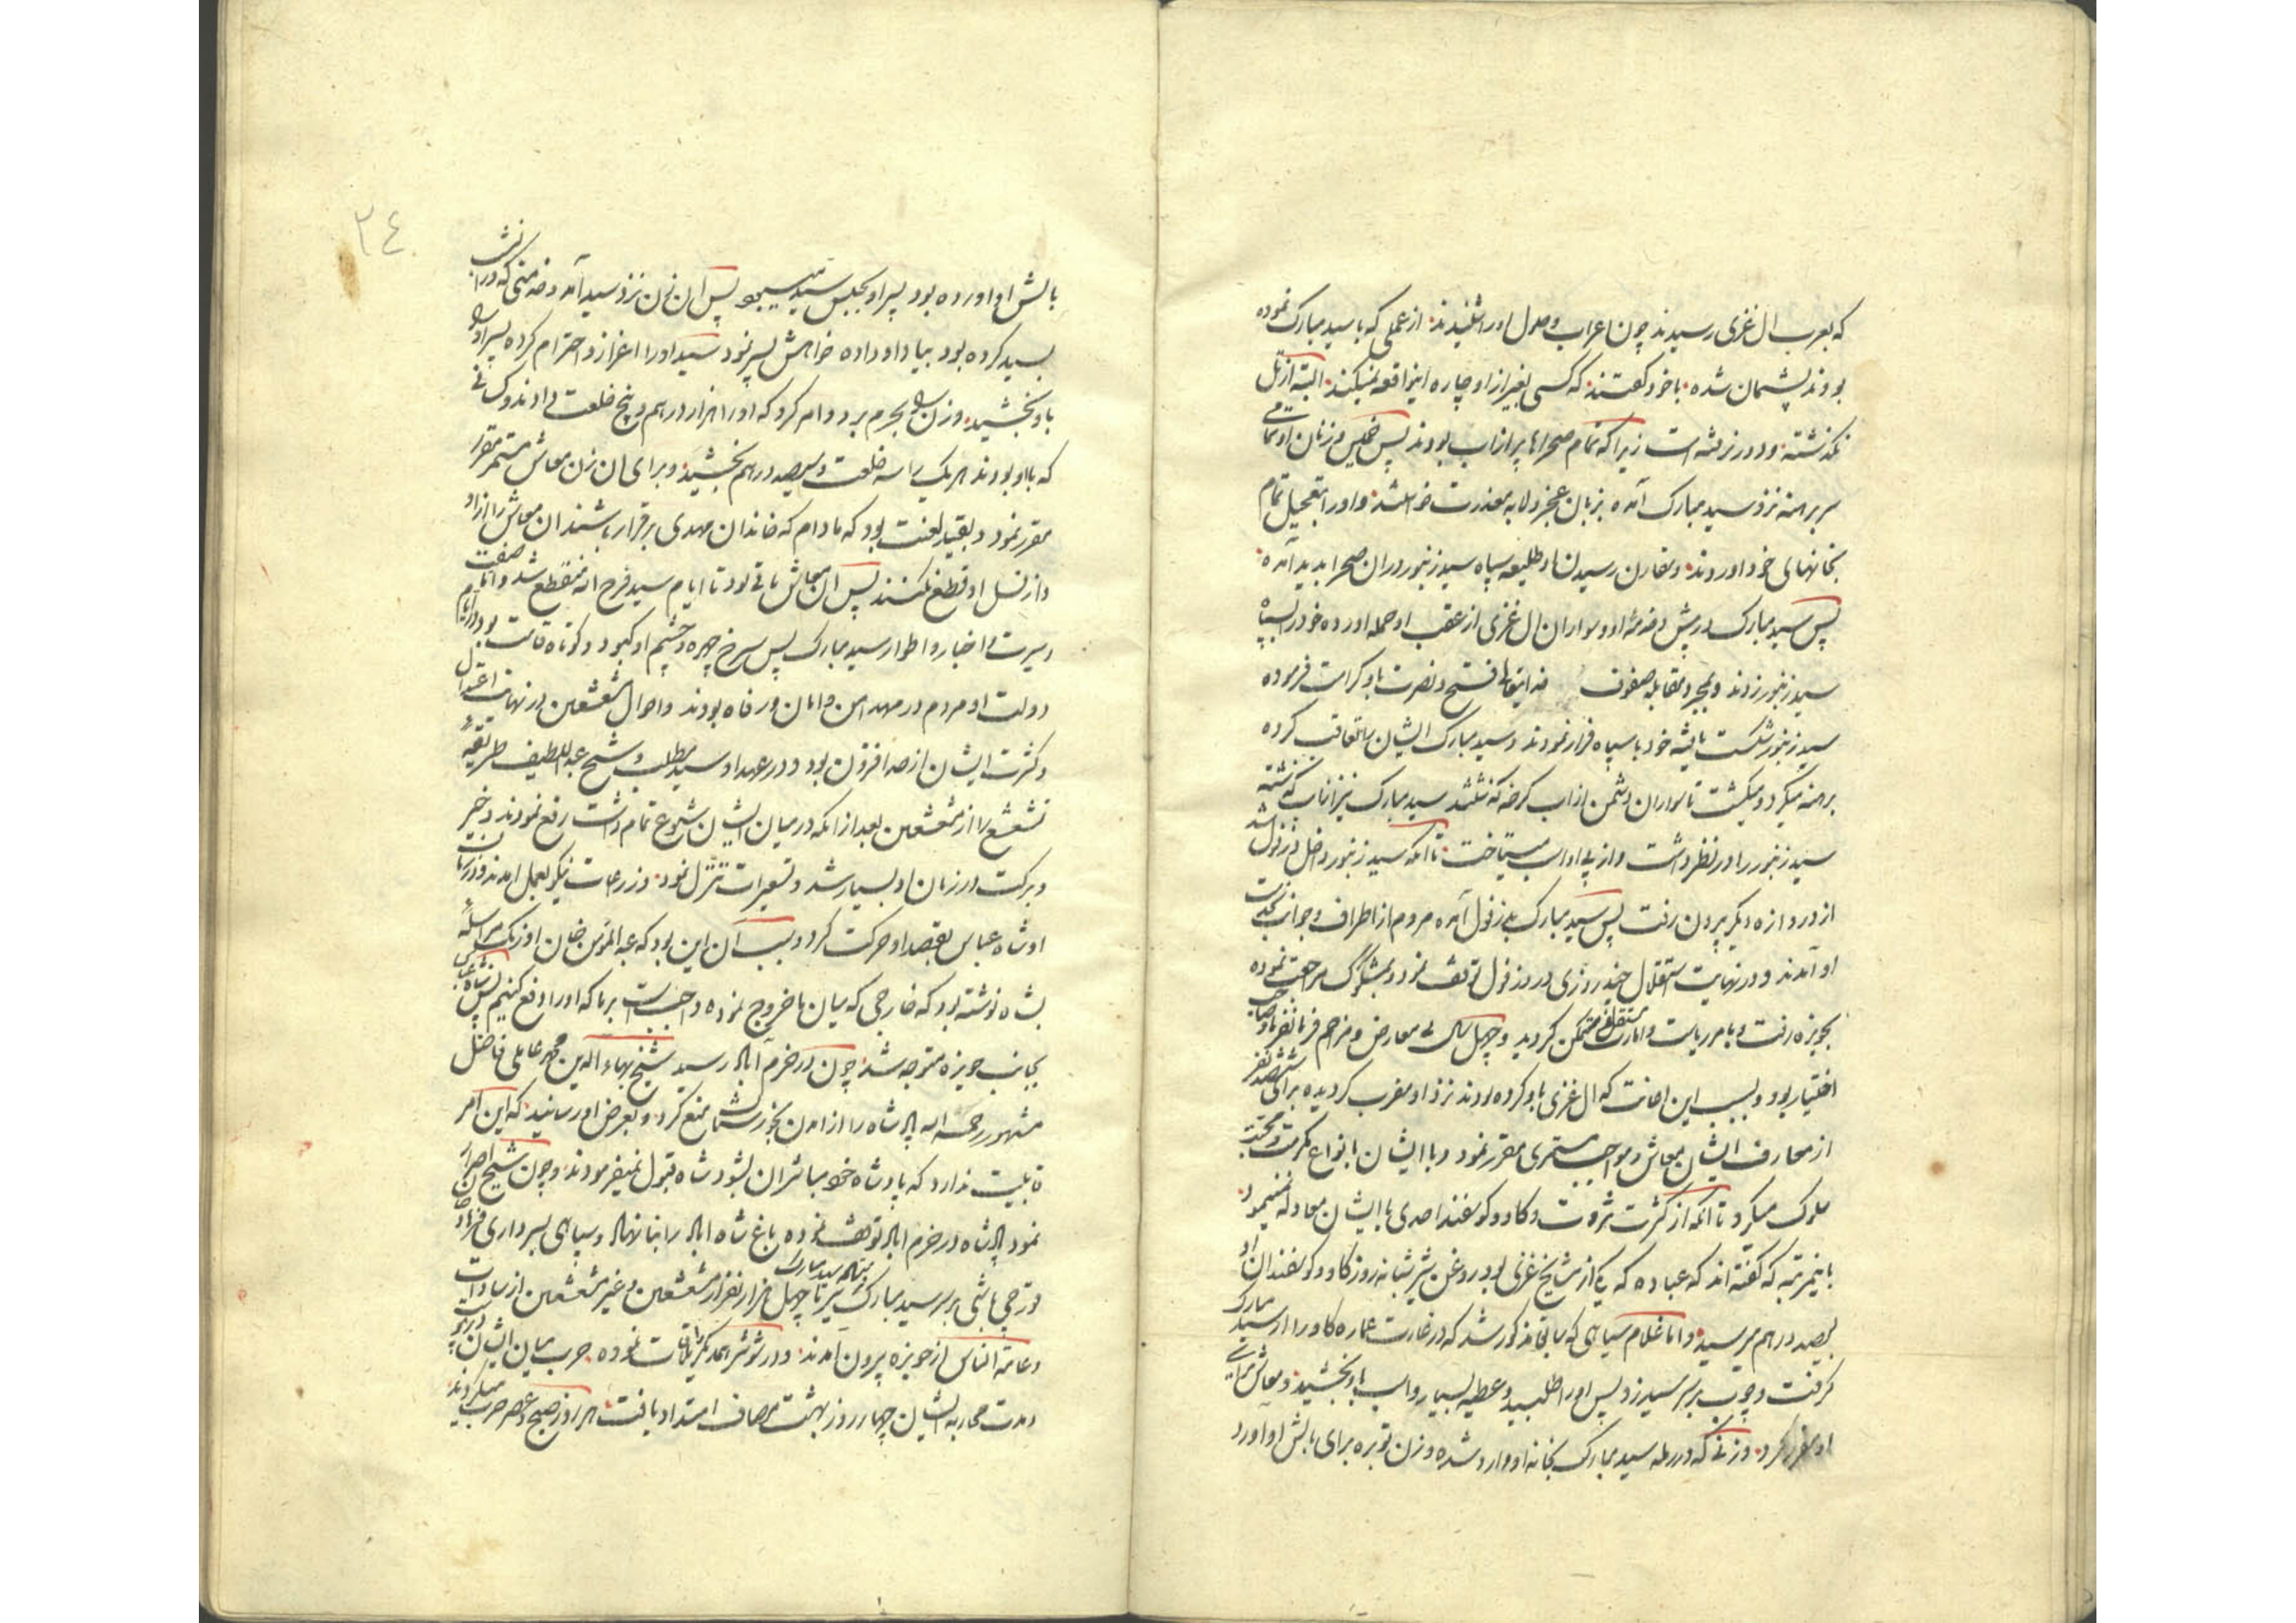 که بعرب ال غزی رسیدند چون اعراب وصول اورا شنیدند از عملی که با سید مبارک نموده
بودند پشیمان شده با خود گفتند که کسی بغیر از او چاره اینواقعه نمیکند البته از تل
نگذشته و دور نرفته است زیرا که تمام صحراها پر از اب بودند پس خمیس و زنان او تمامی
سر برهنه نزد سید مبارک آمده بزبان عجز و لابه معذرت خواستند و اورا بتعجیل تمام
بخانهای خود اوردند و مقارن رسیدن او طلیعه سپاه سید زنبور در ان صحرا پدید آمده
پس سید مبارک در پیش و خدمه او و سواران ال غزی از عقب او حمله اورده خود را بسپاه
سید زنبور زدند و بمجرد مقابله صفوف خدایتعالی فتح و نصرت باو کرامت فرموده
سید زنبور شکست یافته خود با سپاه فرار نمودند و سید مبارک ایشان را تعاقب کرده
برهنه میکرد و میکشت تا سواران دشمن از اب کرخه گذشتند سید مبارک نیز از اب گذشته
سید زنبور را در نظر داشت و از پی او اسب میتاخت تا انکه سید زنبور داخل دزفول شد
از دروازه دیگر بیرون رفت پس سید مبارک بدزفول آمده مردم از اطراف و جوانب بخدمت
او آمدند و در نهایت استقلال چند روزی در دزفول توقف نمود و بشوکت مراجعت نموده
بحویزه رفت و بامر ریاست و امارت مستقلا متمکن گردید و چهل سال بی معارض و مزاحم فرمانفرما و صاحب
اختیار بود و بسبب این اعانت که ال غزی باو کرده بودند نزد او مقرب گردیده برای ششصد نفر
از معارف ایشان معاش و مواجب مستمری مقرر نمود و با ایشان بانواع مکرمت و محبت
سلوک میکرد تا انکه از کثرت ثروت و گاو و گوسفند احدی با ایشان معادله نمینمود
باینمرتبه که گفته اند که عباده که یکی از مشایخ غزی بود روغن شیر شبانه روز گاو و گوسفندان او
بصد درهم میرسید و اما غلام سیاهی که سابقا مذکور شد که در غارت عماره گاو را از سید مبارک
گرفت و چوب بر سر سید زد پس اورا طلبید و عطیه بسیار و اسب باو بخشید و معاش برای
او مقرر کرد و زنی که در رمله سید مبارک بخانه او وارد شده و زن توبره برای بالش او آورد
٣٤
بالش او اورده بود پسر او بحبس سید میبود پس ان زن نزد سید آمد و خدمتی که در انشب
بسید کرده بود بیاد او داده خواهش پسر نمود سید اورا اعزاز و احترام کرده پسر او را
باو بخشید و زن را بحرم برد و امر کرد که اورا هزار درهم و پنج خلعت دادند و کسانی
که با او بودند هر یک را سه خلعت و سیصد درهم بخشید و برای ان زن معاش مستمر مقرر
مقرر نمود و بقید لعنت بود که مادام که خاندان مهدی برقرار باشند ان معاش را از او
و از نسل او قطع نکنند پس ان معاش باقی بود تا ایام سید فرج الله منقطع شد و اما صفت
و سیرت و اخبار و اطوار سید مبارک پس سرخ چهره و چشم او کبود و کوتاه قامت بود و در ایام
دولت او مردم در مهد امن و امان و رفاه بودند و احوال مشعشعین در نهایت اعتدال
و کثرت ایشان از حد افزون بود و در عهد او سید مطلب و شیخ عبد اللطیف طریقهٔ
تشعشع را از مشعشعین بعد از انکه در میان ایشان شیوع تمام داشت رفع نمودند و خیر
و برکت در زمان او بسیار شد و تسعیرات تنزل نمود و زرعات نیکو بعمل امدند و در زمان
او شاه عباس بقصد او حرکت کرد و سبب آن این بود که عبد المؤمن خان اوزبک مراسلهٔ
بشاه نوشته بود که خارجی که میان ما خروج نموده واجبست بر ما که اورا دفع کنیم پس شاه عباس
بجانب حویزه متوجه شد چون در خرم آباد رسید شیخ بهاء الدین محمد عاملی فاضل
مشهور رحمه الله پادشاه را از امدن بخوزستان منع کرد و بعرض او رسانید که این امر
قابلیت ندارد که پادشاه خود مباشر ان بشود شاه قبول نمیفرمودند و چون شیخ اصرار
نمود پادشاه در خرم اباد توقف نموده باغ شاه اباد را بنا نهاد و سپاهی بسرداری فرهاد خان
قورچی باشی بر سر سید مبارک فرستاد سید مبارک نیز تا چهل هزار نفر از مشعشعین و غیر مشعشعین از سادات
و عامة الناس از حویزه بیرون آمدند و در شوشتر با همدیگر ملاقات نموده حرب میان ایشان در پیوست
و مدت محاربه ایشان چهار روز بهشت مصاف امتداد یافت هر روز صبح و عصر حرب میکردند